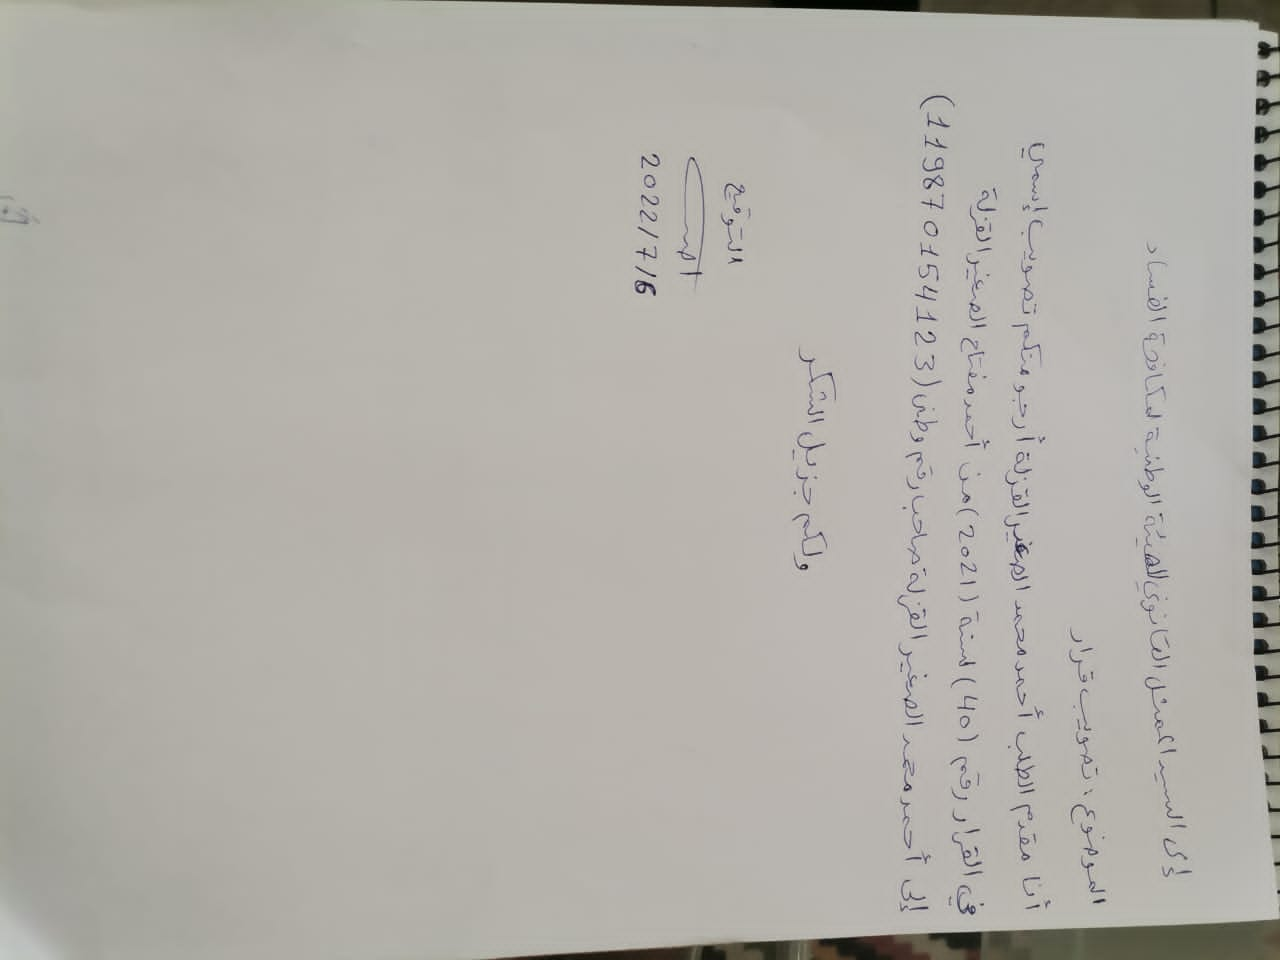 إلى السيد الممثل القانوني للهيئة الوطنية لمكافحة الفساد
الموضوع: تصويب قرار
أنا مقدم الطلب أحمد محمد الصغير القزلة أرجو منكم تصويب إسمي
في القرار رقم (40) لسنة (2021) من أحمد مفتاح الصغير القزلة
إلى أحمد محمد الصغير القزلة صاحب رقم وطني (119870154123)
ولكم جزيل الشكر
التوقيع
2022/7/6